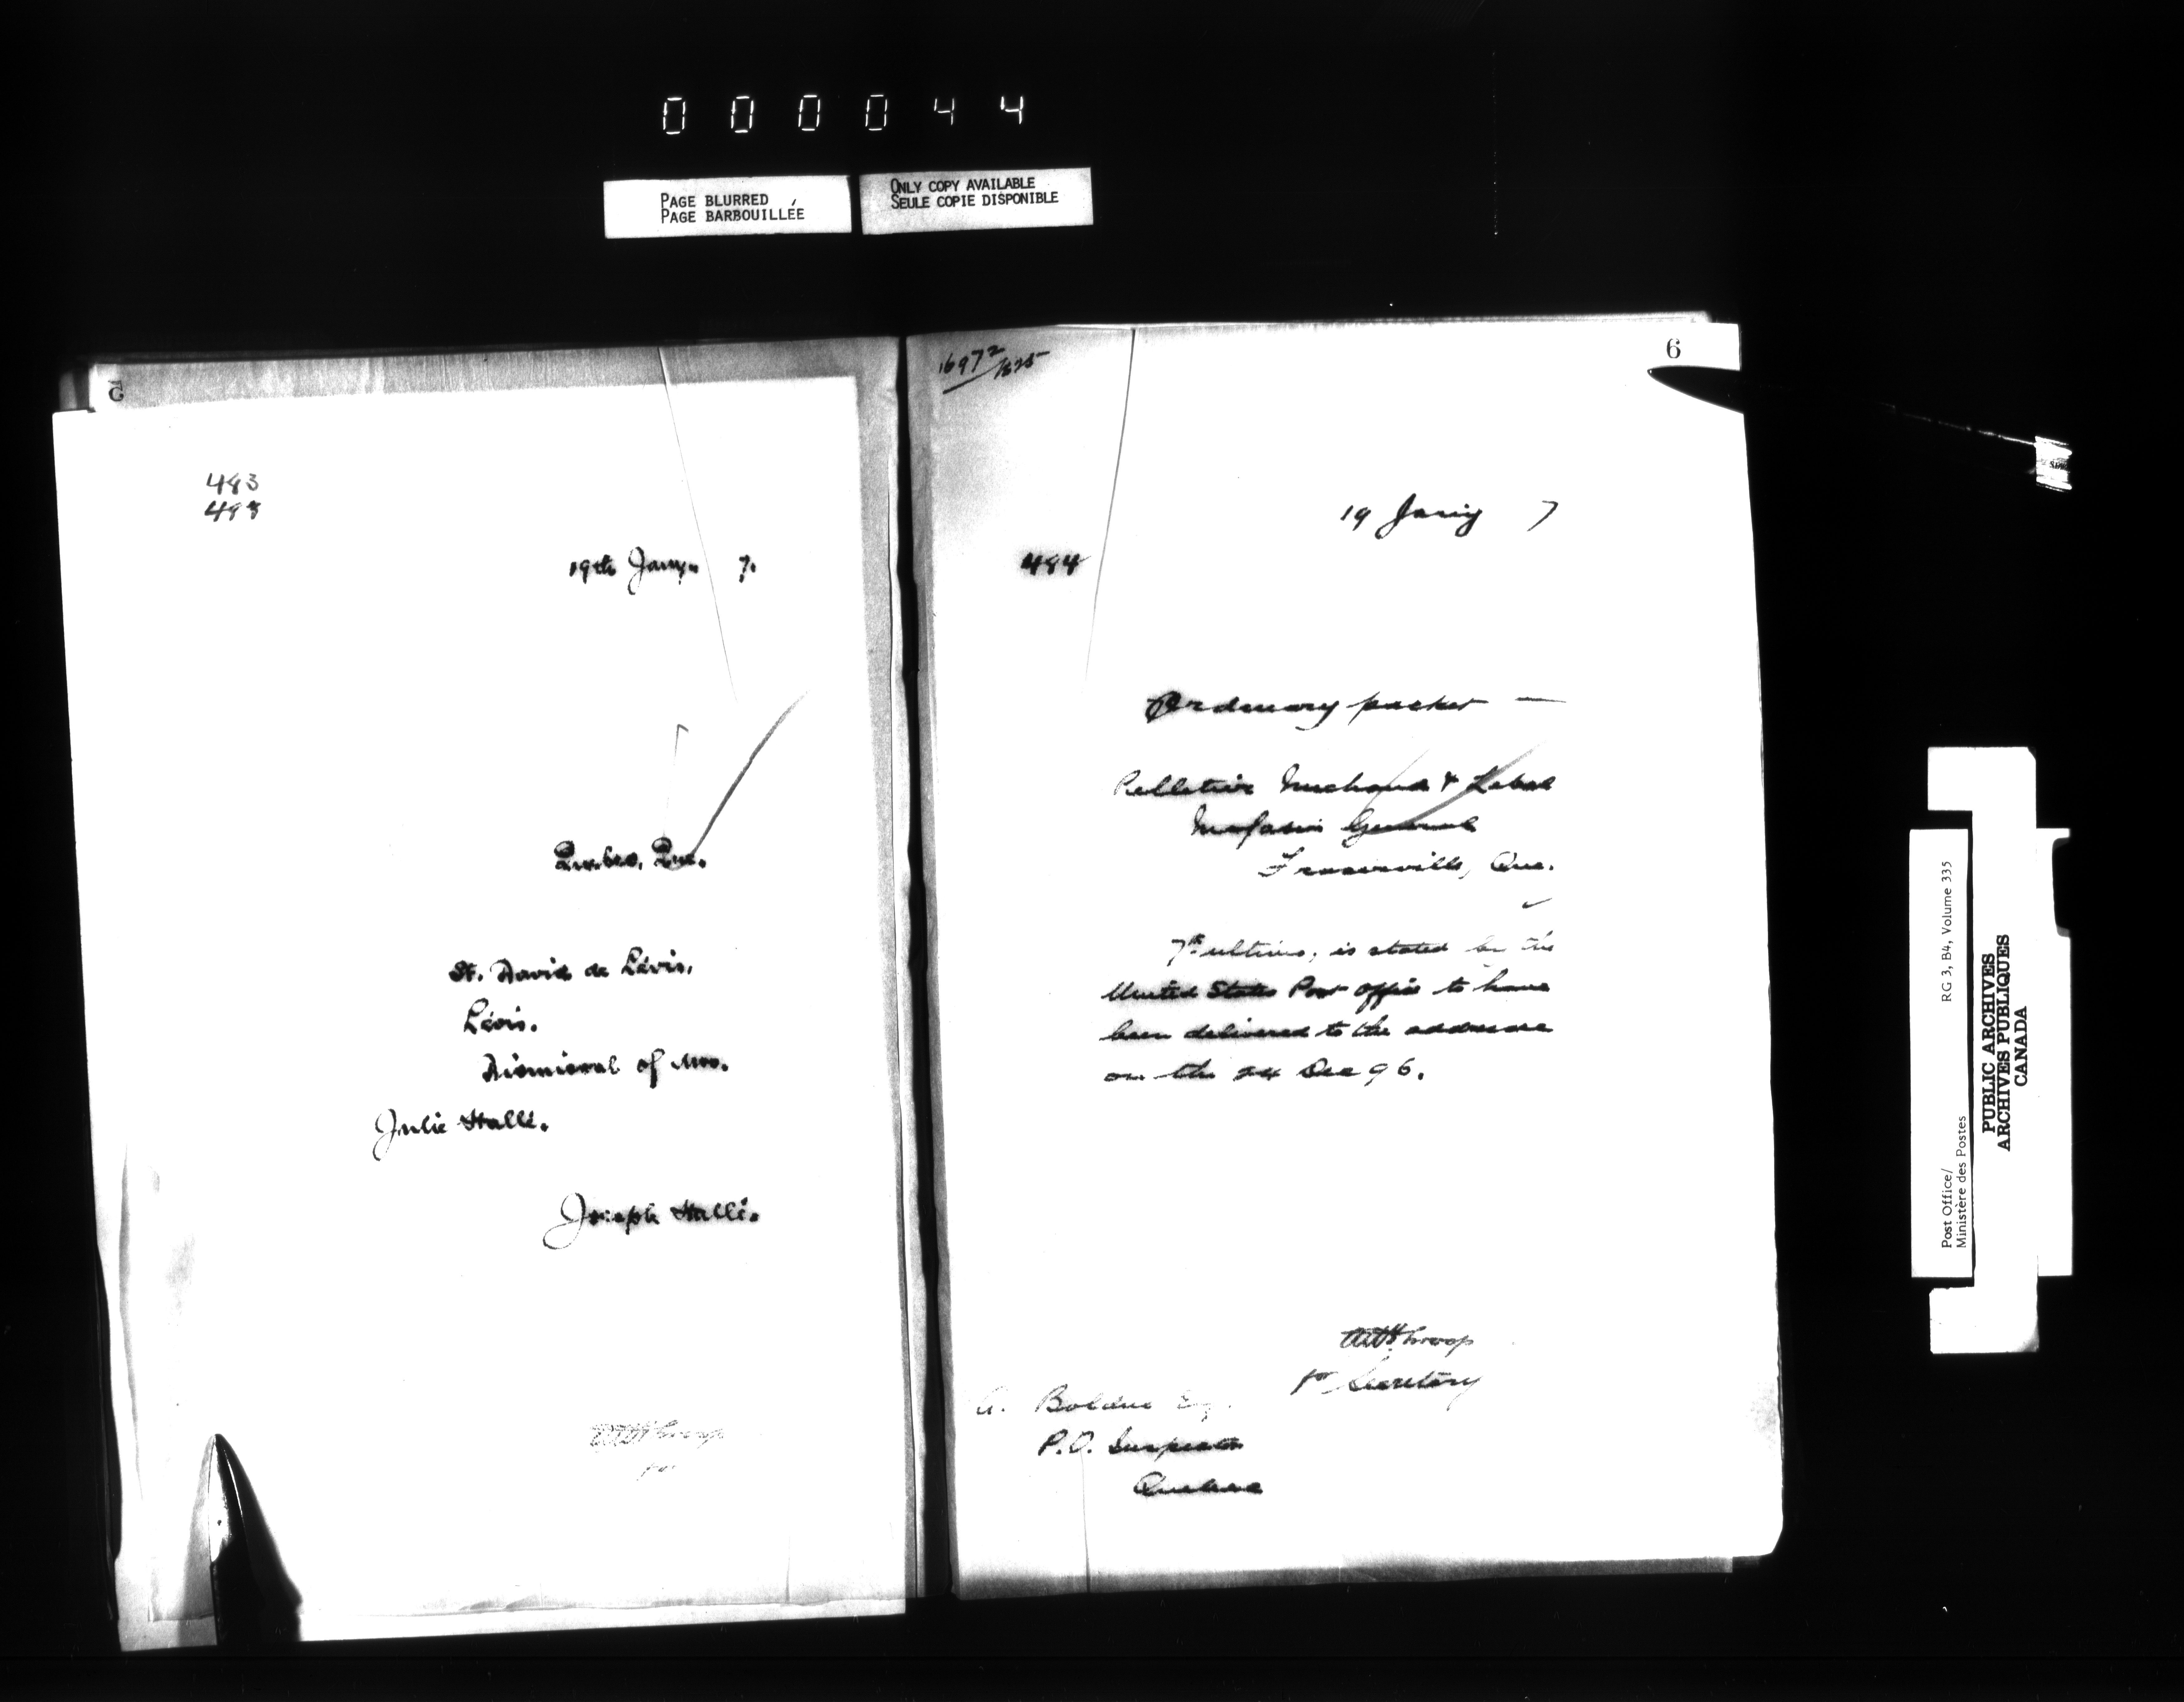 000044
PAGE BLURRED
PAGE BARBOUILLÉE
ONLY COPY AVAILABLE
SEULE COPIE DISPONIBLE
5
483
485
19th Jany. 7.
Quebec, Que.
St. David de Lévis.
Lévis.
Dismissal of Mrs.
Julie Hallé.
Joseph Hallé.
for
6
1697
19 Jany 7
484
Ordinary packet —
Pelletier Michaud & Lebel
Magasin General
Fraserville, Que.
7th ultimo, is stated by the
United States Post Office to have
been delivered to the addressee
on the 24 Dec 96.
for Secretary
A. Bolduc Esq.
P.O. Inspector
Quebec
Post Office/
Ministère des Postes
RG 3, B4, Volume 335
PUBLIC ARCHIVES
ARCHIVES PUBLIQUES
CANADA